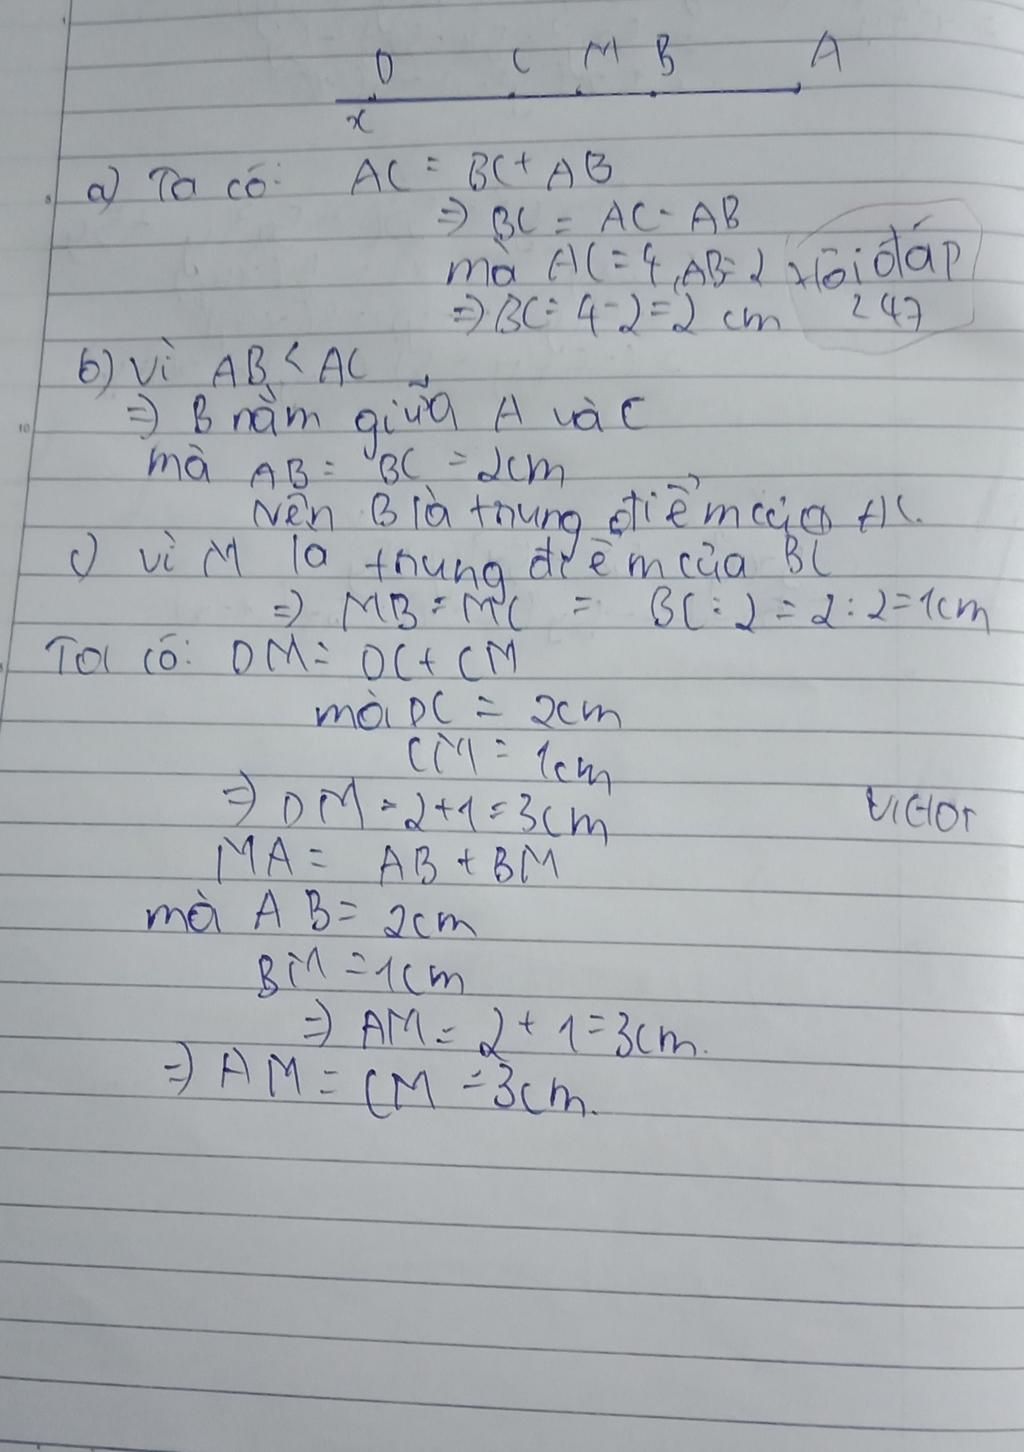 D C M B A
x
a) Ta có: AC = BC + AB
=> BC = AC - AB
mà AC = 4, AB = 2
=> BC = 4 - 2 = 2 cm
Hỏi đáp
247
b) Vì AB < AC
=> B nằm giữa A và C
mà AB = BC = 2cm
Nên B là trung điểm của AC.
c) Vì M là trung điểm của BC
=> MB = MC = BC : 2 = 2 : 2 = 1cm
Ta có: DM = DC + CM
mà DC = 2cm
CM = 1cm
=> DM = 2 + 1 = 3cm
Victor
MA = AB + BM
mà AB = 2cm
BM = 1cm
=> AM = 2 + 1 = 3cm.
=> AM = CM = 3cm.